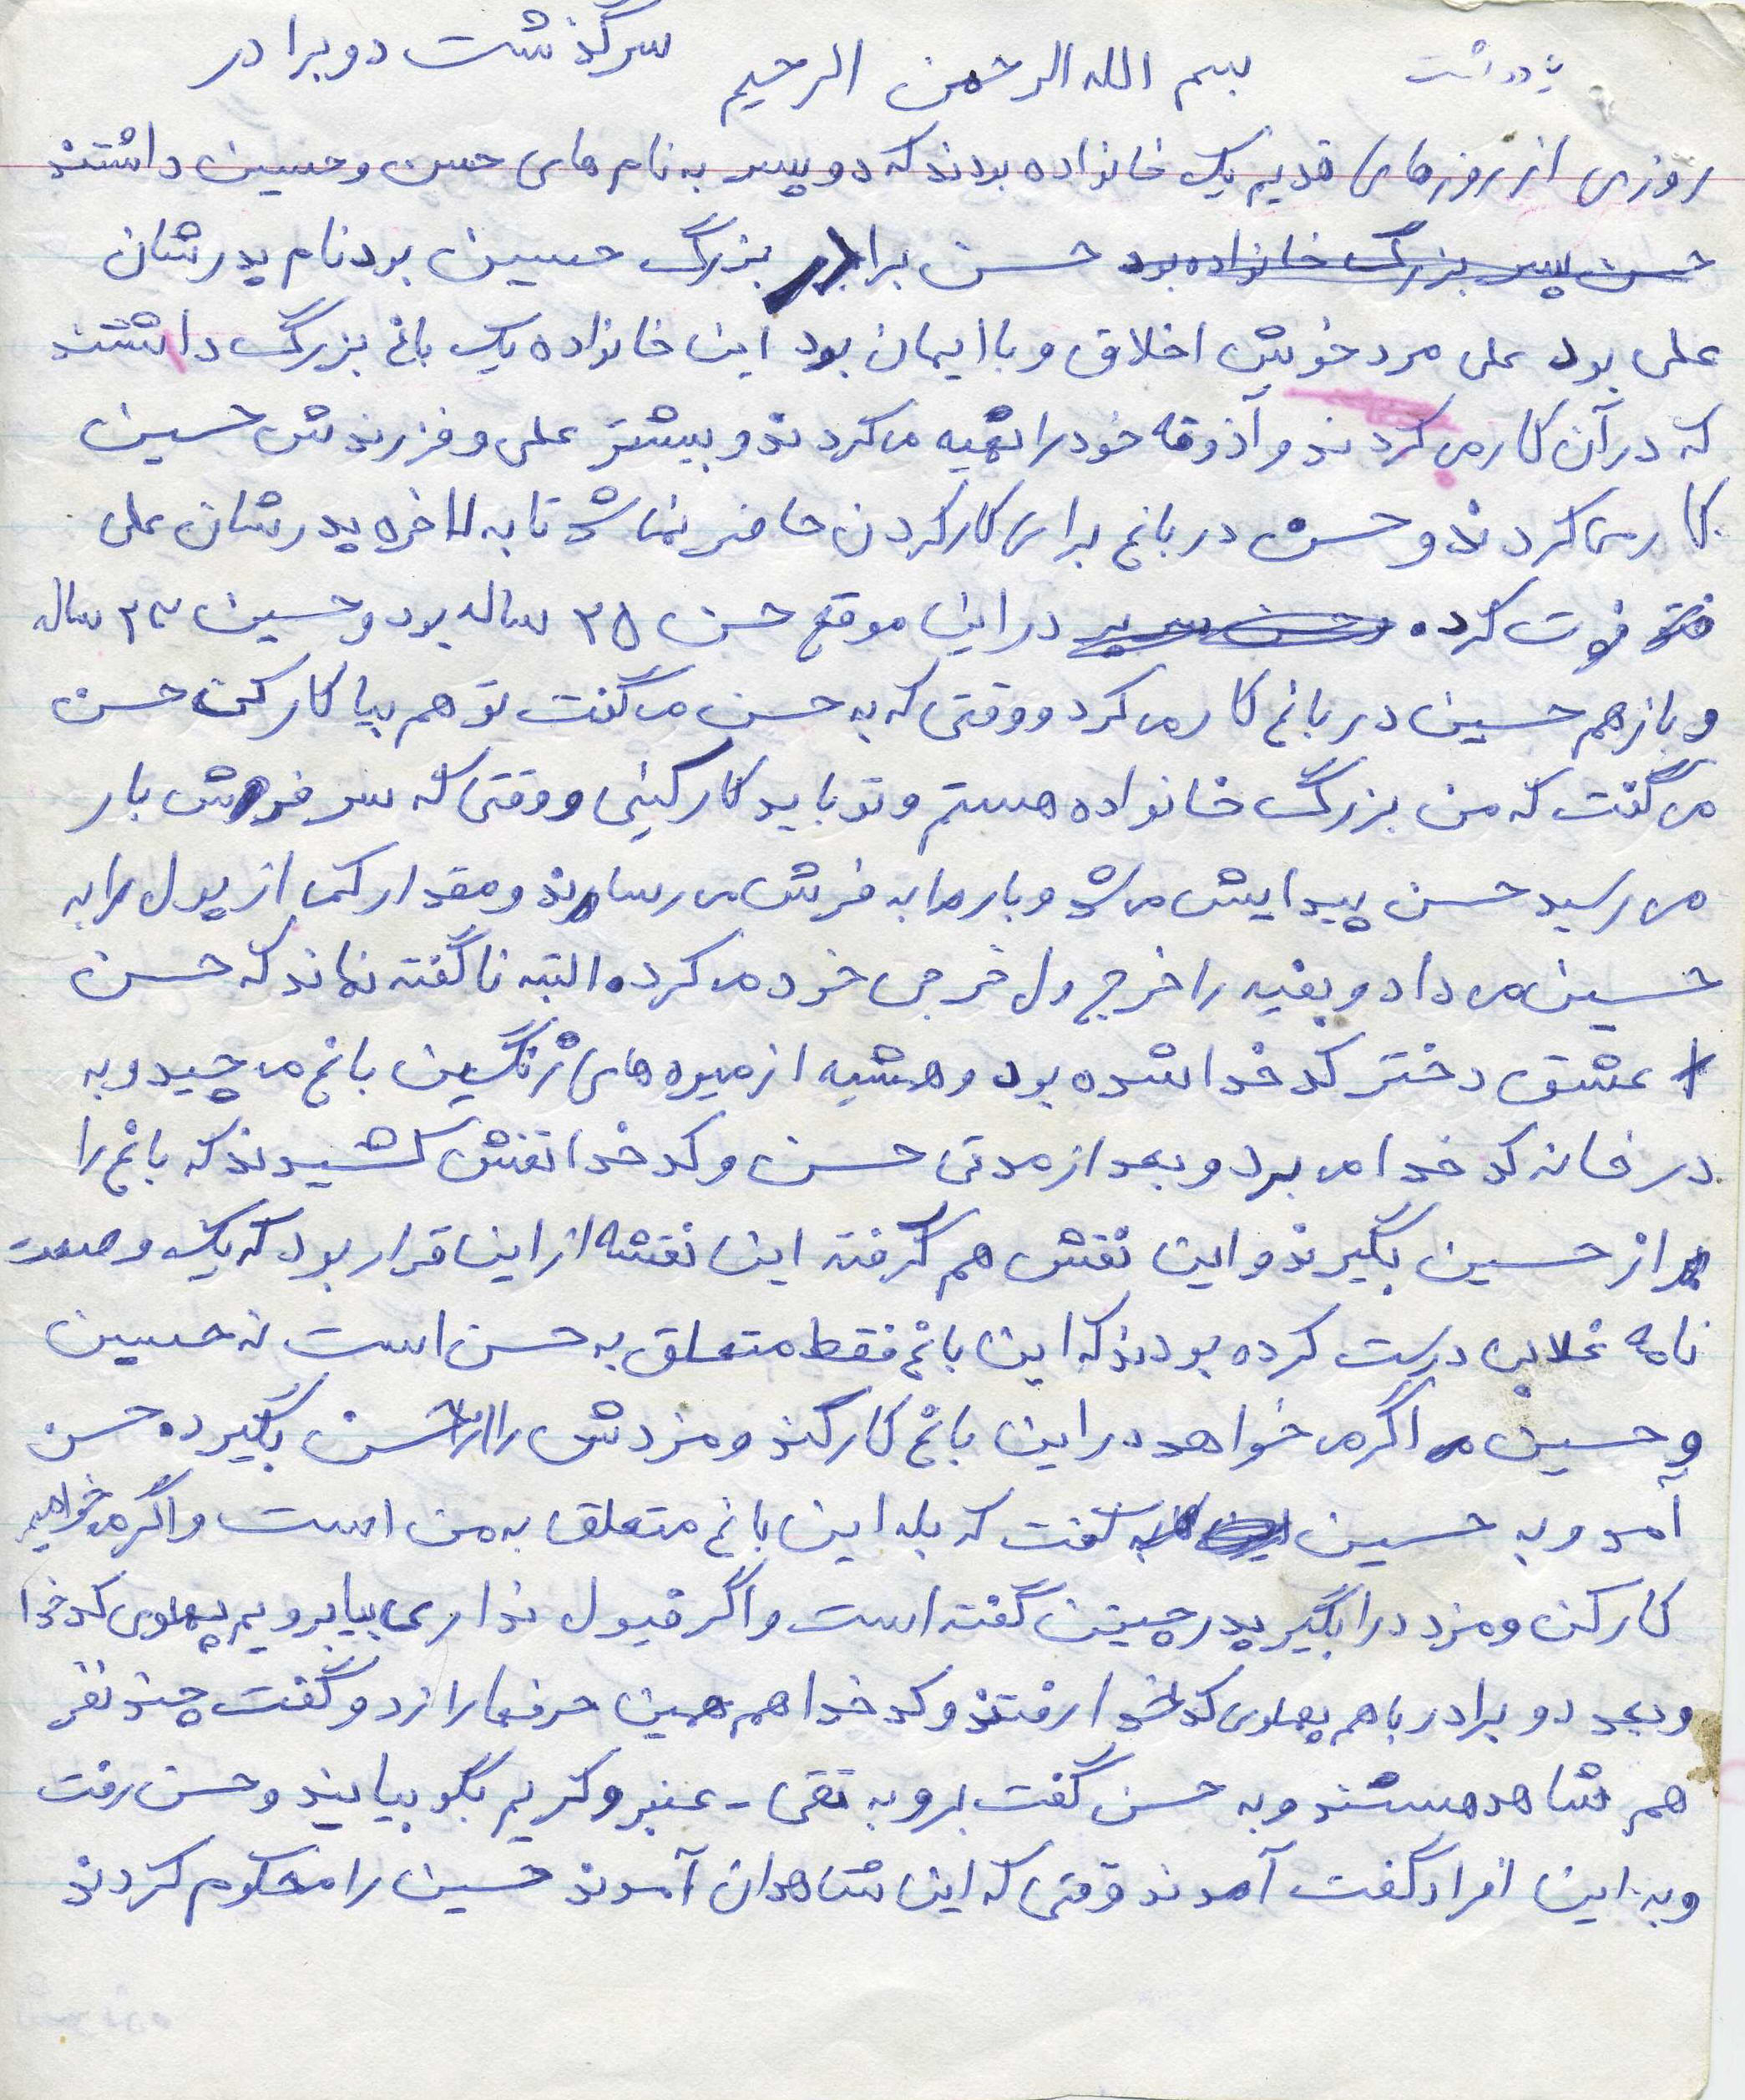 بسم الله الرحمن الرحیم سرگذشت دو برادر
روزی از روزهای قدیم یک خانواده بودند که دو پسر به نام های حسن و حسین داشتند
حسن پسر بزرگ خانواده بود حسن برادر بزرگ حسین بود نام پدرشان
علی بود علی مرد خوش اخلاق و با ایمان بود این خانواده یک باغ بزرگ داشتند
که در آن کار می کردند و آذوقه خود را تهیه می کردند و بیشتر علی و فرزندش حسین
کار می کردند و حسن در باغ برای کار کردن حاضر نمی شد تا به لاخره پدرشان علی
فوت کرد. در این موقع حسن ۲۵ ساله بود و حسین ۲۳ ساله
و باز هم حسین در باغ کار می کرد و وقتی که به حسن می گفت تو هم بیا کار کن حسن
می گفت که من بزرگ خانواده هستم و تو باید کار کینی و وقتی که سر فروش بار
می رسید حسن پیدایش می شد و بار را به فرش می رساند و مقدار کمی از پول را به
حسین می داد و بقیه را خرج ول خرجی خود می کرد. البته ناگفته نماند که حسن
عشق دختر کد خدا شده بود و همشیه از میوه های رنگین باغ می چید و به
در خانه کد خدا می برد و بعد از مدتی حسن و کد خدا نقش کشیدند که باغ را
از حسین بگیرند و این نقش هم گرفته این نقشه از این قرار بود که یک وصعت
نامه غلابی درست کرده بودند که این باغ فقط متعلق به حسن است نه حسین
و حسین اگر می خواهد در این باغ کار کند و مزدش را از حسن بگیرد. حسن
آمد و به حسین گفت که بله این باغ متعلق به من است و اگر می خواهید
کار کن و مزد را بگیر پدر چینن گفته است و اگر قبول نداری بیا برویم پهلوی کد خدا
و بعد دو برادر باهم پهلوی کد خدا رفتند و کد خدا هم همین حرفها را زد و گفت چند نفر
هم شاهد هستند و به حسن گفت برو به تقی - عنبر و کریم بگو بیایند و حسن رفت
و به این افراد گفت آمدند وقتی که این شاهدان آمدند حسین را محکوم کردند